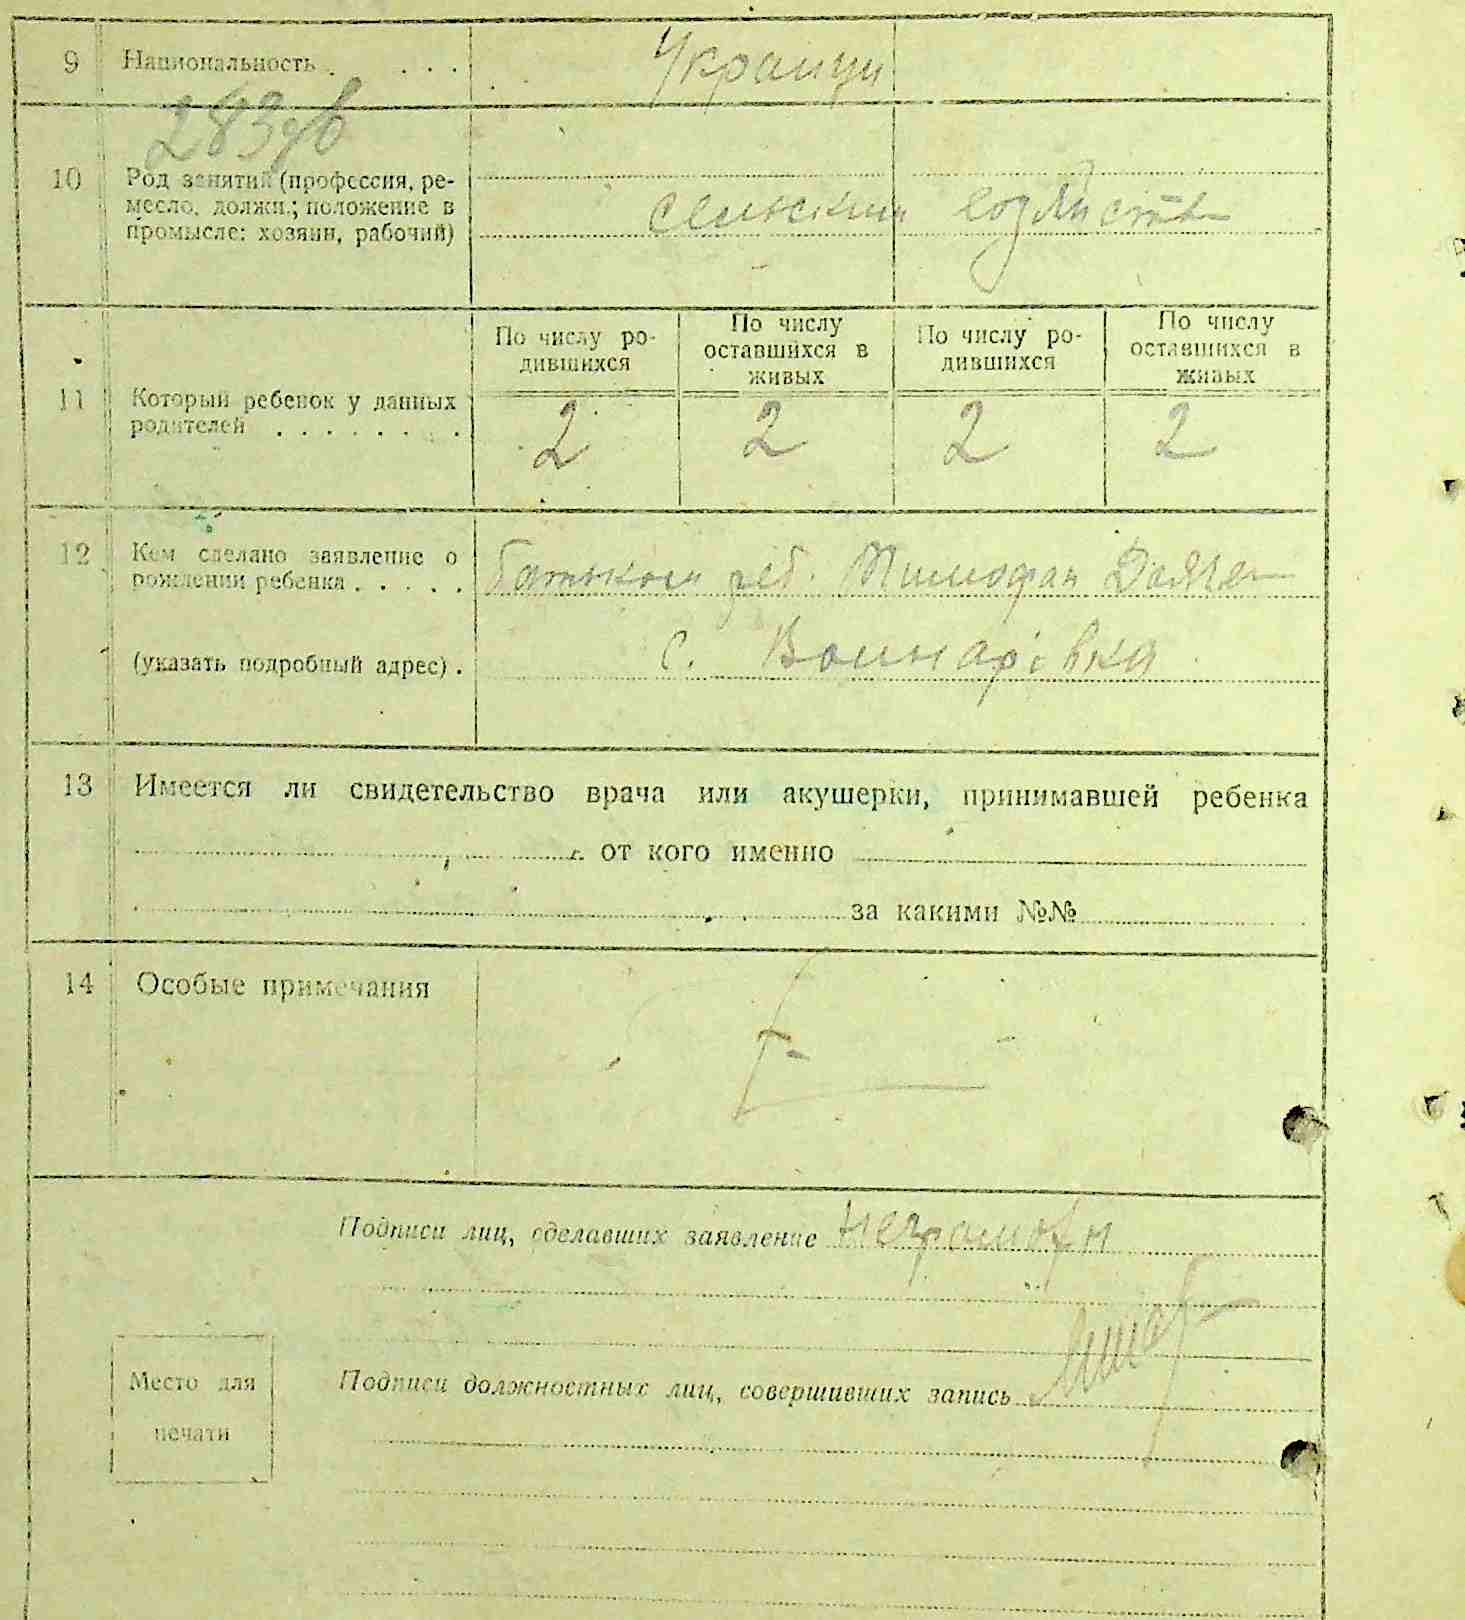 9 Национальность . . . . Украинци
283 дв
10 Род занятий (профессия, ре-
месло, должн.; положение в
промысле: хозяин, рабочий)
По числу ро-
дившихся
По числу
оставшихся в
живых
По числу ро-
дившихся
По числу
оставшихся в
живых
11 Который ребенок у данных
родителей . . . . . . . .
2 2 2 2
12 Кем сделано заявление о
рождении ребенка . . . . . Батьком реб.
(указать подробный адрес) . с.
13 Имеется ли свидетельство врача или акушерки, принимавшей ребенка
г. от кого именно
за какими №№
14 Особые примечания
Подписи лиц, сделавших заявление неграмотн
Место для
печати
Подписи должностных лиц, совершивших запись